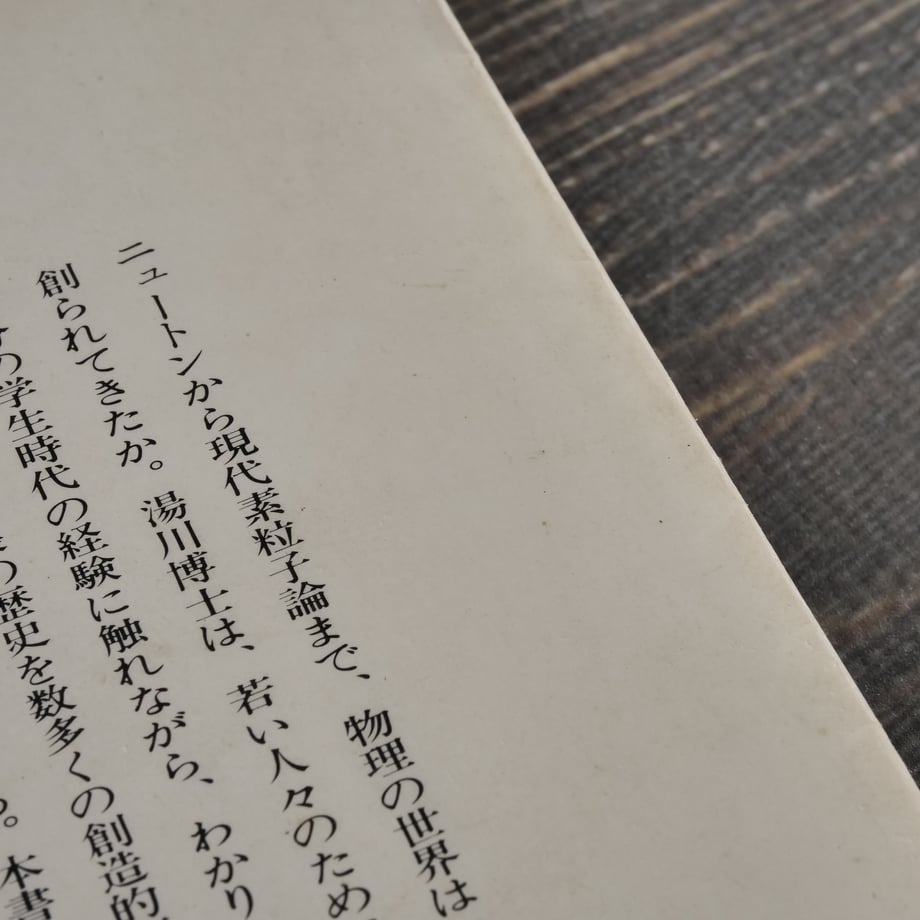 ニュートンから現代素粒子論まで、物理の世界は
創られてきたか。湯川博士は、若い人々のため
の学生時代の経験に触れながら、わかり
の歴史を数多くの創造的
。本書